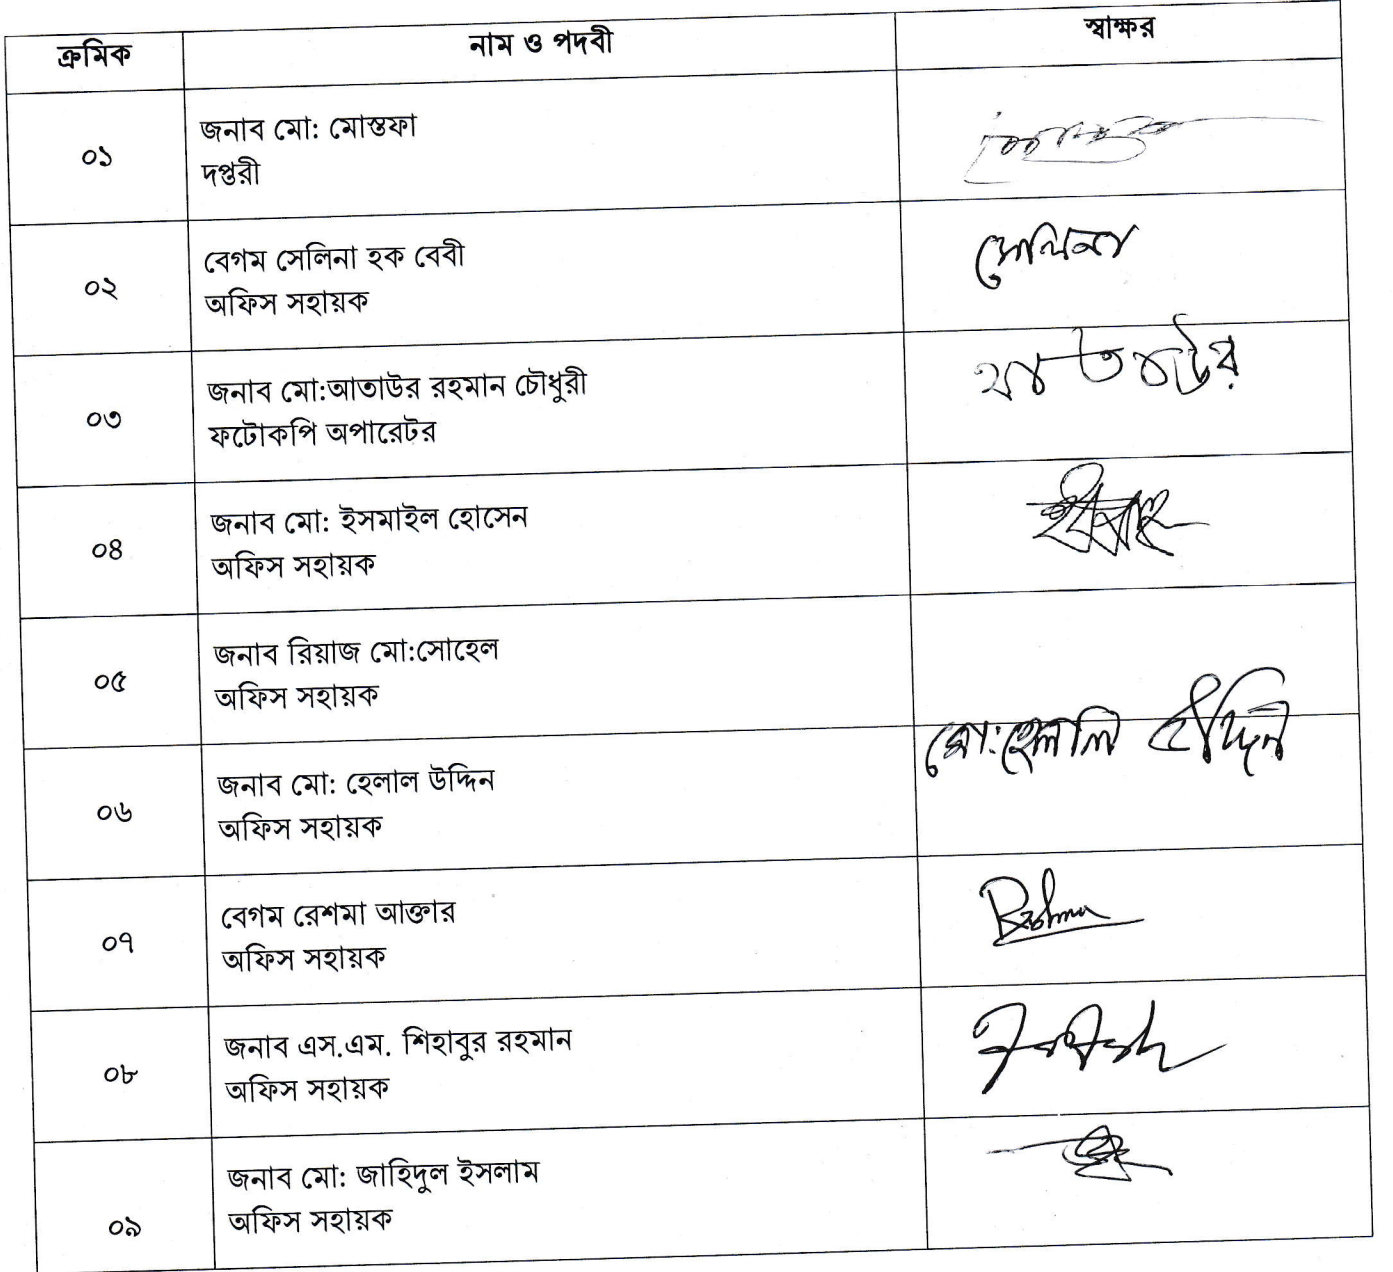 ক্রমিক নাম ও পদবী স্বাক্ষর
০১ জনাব মো: মোস্তফা
দপ্তরী
০২ বেগম সেলিনা হক বেবী সেলিনা
অফিস সহায়ক
০৩ জনাব মো:আতাউর রহমান চৌধুরী আতাউর
ফটোকপি অপারেটর
০৪ জনাব মো: ইসমাইল হোসেন
অফিস সহায়ক
০৫ জনাব রিয়াজ মো:সোহেল
অফিস সহায়ক
০৬ জনাব মো: হেলাল উদ্দিন মো:হেলাল উদ্দিন
অফিস সহায়ক
০৭ বেগম রেশমা আক্তার
অফিস সহায়ক
০৮ জনাব এস.এম. শিহাবুর রহমান
অফিস সহায়ক
০৯ জনাব মো: জাহিদুল ইসলাম
অফিস সহায়ক